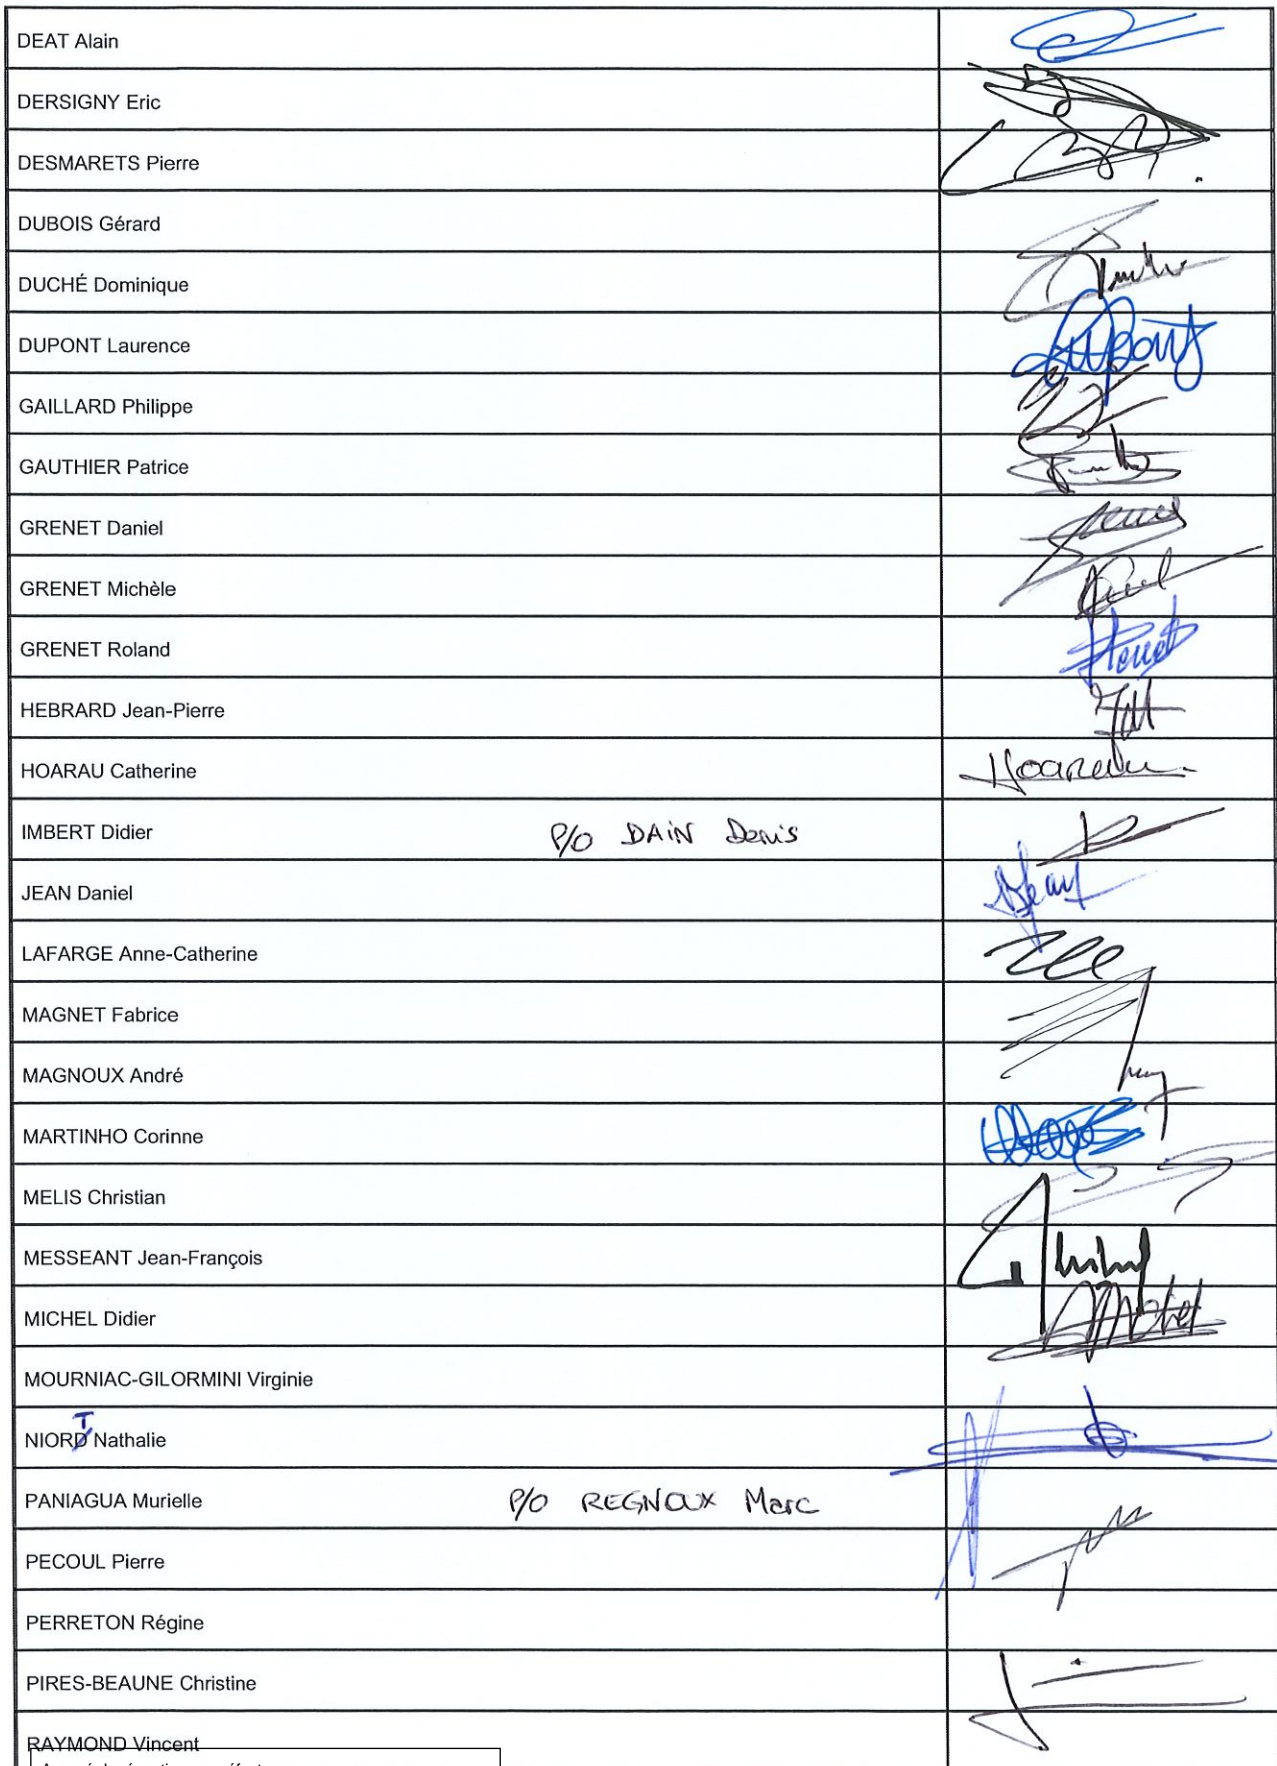 DEAT Alain
DERSIGNY Eric
DESMARETS Pierre
DUBOIS Gérard
DUCHÉ Dominique
DUPONT Laurence
GAILLARD Philippe
GAUTHIER Patrice
GRENET Daniel
GRENET Michèle
GRENET Roland
HEBRARD Jean-Pierre
HOARAU Catherine
IMBERT Didier P/O DAIN Denis
JEAN Daniel
LAFARGE Anne-Catherine
MAGNET Fabrice
MAGNOUX André
MARTINHO Corinne
MELIS Christian
MESSEANT Jean-François
MICHEL Didier
MOURNIAC-GILORMINI Virginie
NIORT Nathalie
PANIAGUA Murielle P/O REGNOUX Marc
PECOUL Pierre
PERRETON Régine
PIRES-BEAUNE Christine
RAYMOND Vincent